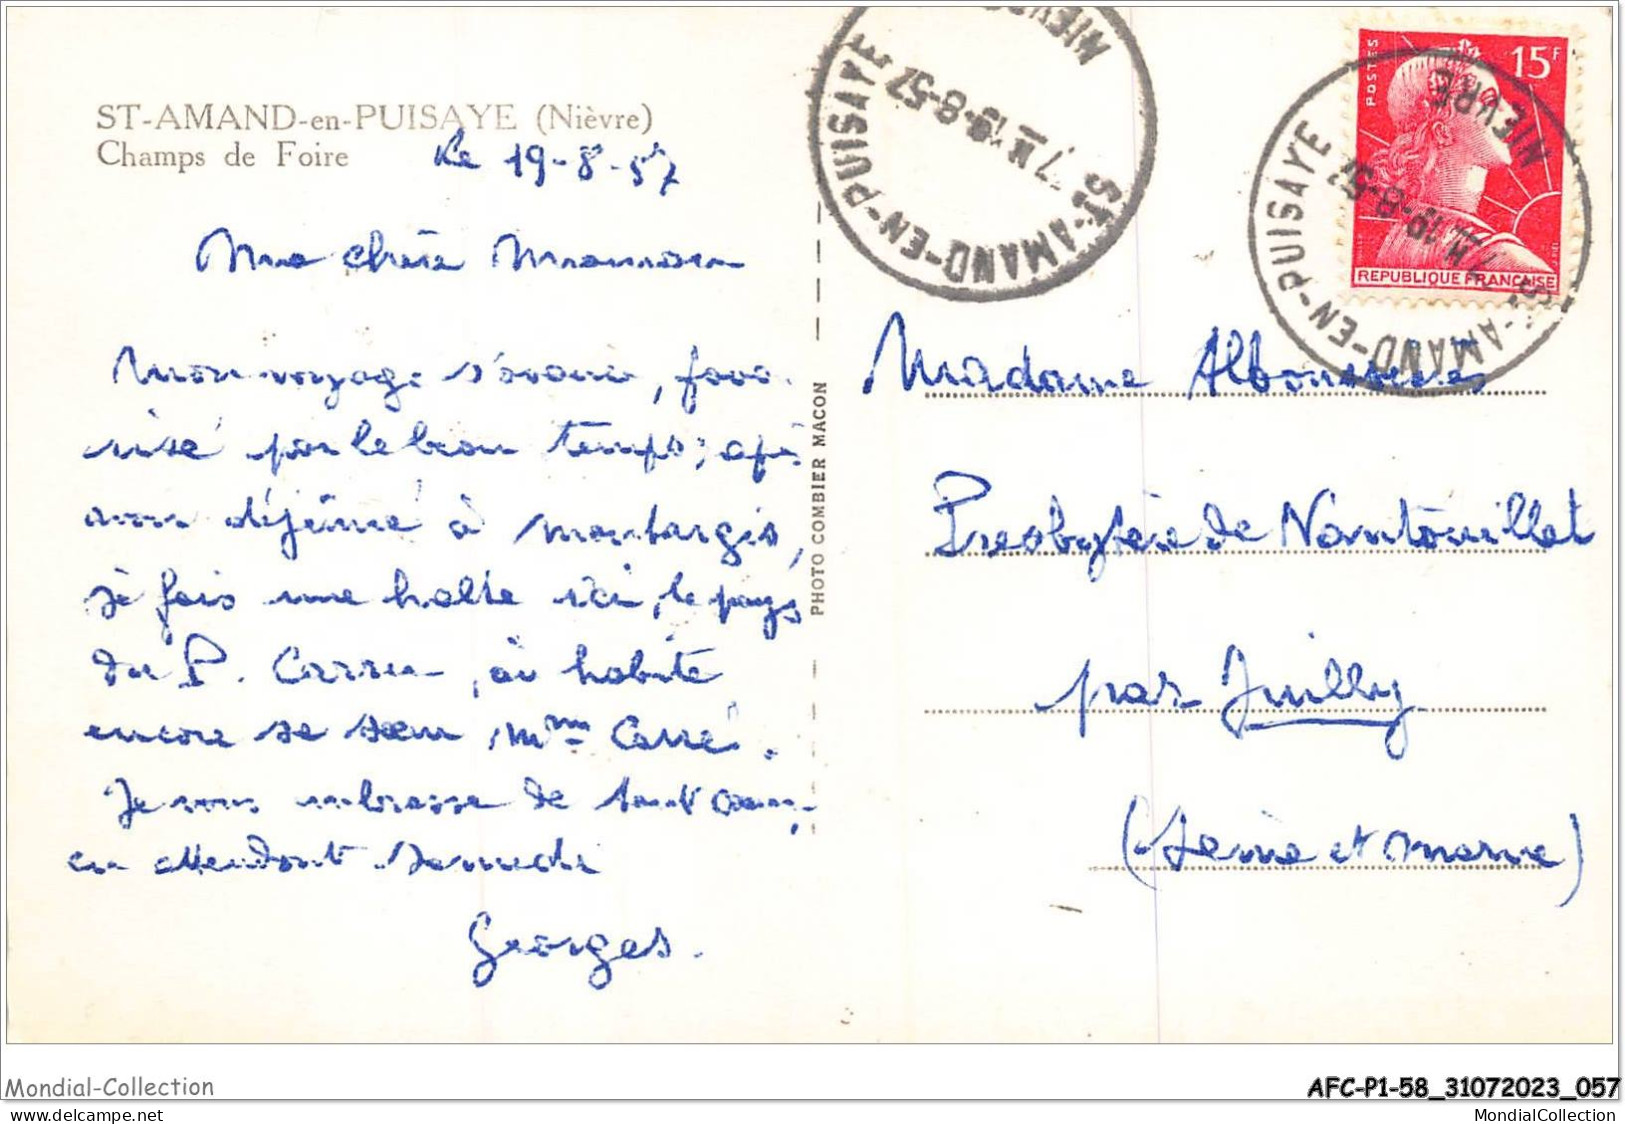 ST-AMAND-en-PUISAYE (Nièvre)
Champs de Foire
Le 19-8-57
Ma chère Maman
Mon voyage s'avance, favo
risé par le beau temps; après
avoir déjeuné à Montargis,
je fais une halte ici, le pays
du P. Carré, où habite
encore sa sœur, Mme Carré.
Je vous embrasse de tout cœur,
en attendant samedi
Georges.
PHOTO COMBIER MACON
ST-AMAND-EN-PUISAYE
NIEVRE
19-8-57
POSTES
15F
REPUBLIQUE FRANÇAISE
ST-AMAND-EN-PUISAYE
NIEVRE
19-8-57
Madame
Presbytère de Nantouillet
par Juilly
(Seine et Marne)
Mondial-Collection
AFC-P1-58_31072023_057
www.delcampe.net
MondialCollection